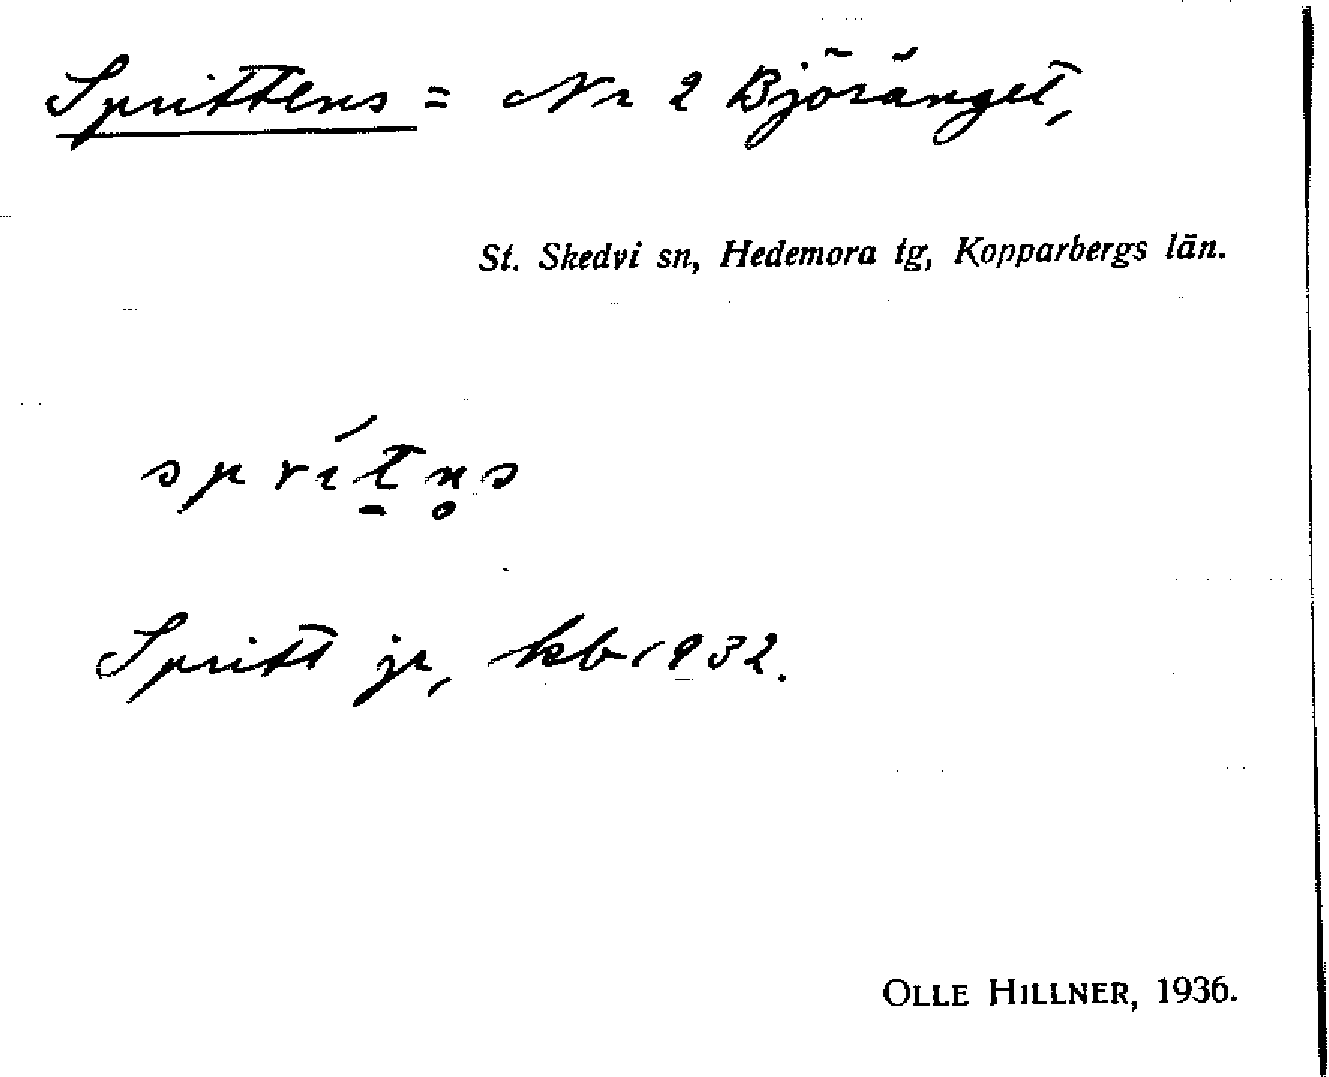 Sprittens = Nr 2 Björänget,
St. Skedvi sn, Hedemora tg, Kopparbergs län.
sprít̠n̥s
Spritt jr, kb 1932.
OLLE HILLNER, 1936.